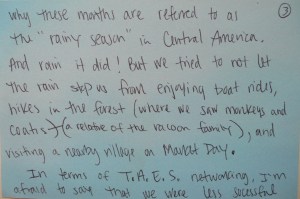 why these months are referred to as ③
the "rainy season" in Central America.
And rain it did! But we tried to not let
the rain stop us from enjoying boat rides,
hikes in the forest (where we saw monkeys and
coatis) (a relative of the racoon family), and
visiting a nearby village on Market Day.
In terms of T.A.E.S. networking, I'm
afraid to say that we were less sucessful